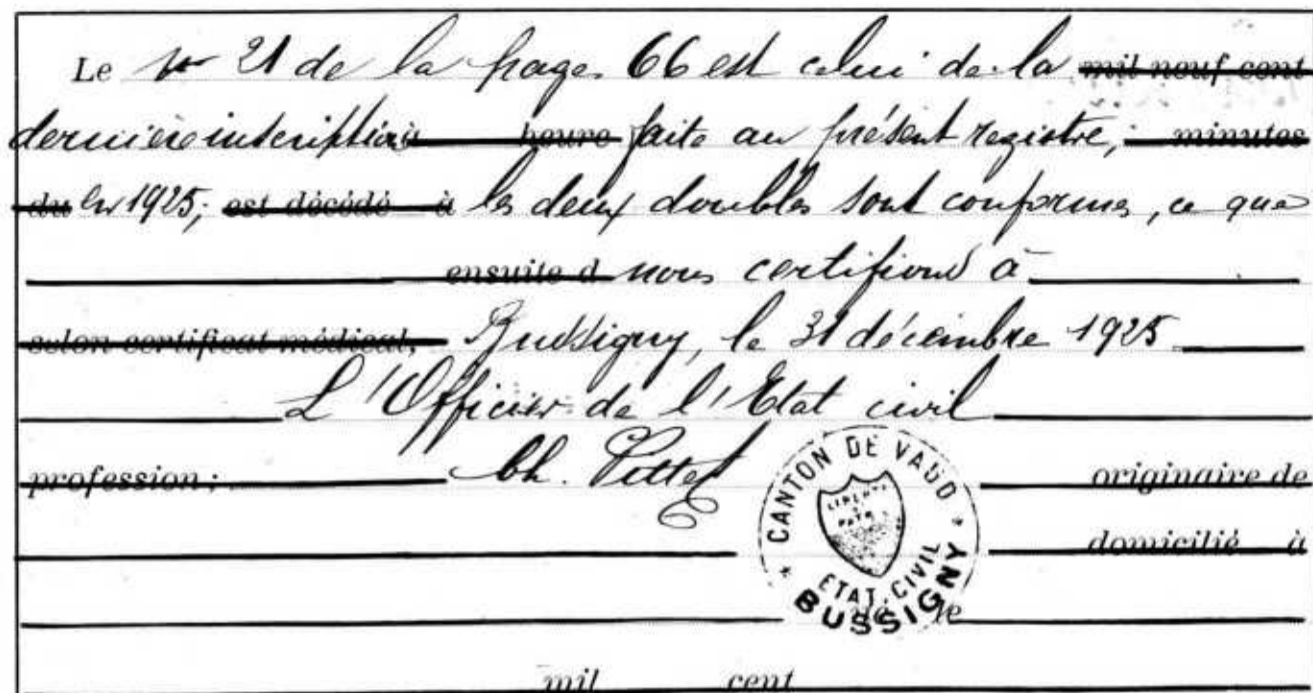 Le no 21 de la page 66 est celui de la mil neuf cent
dernière inscription heure faite au présent registre; minutes
du en 1925; est décédé à les deux doubles sont conformes, ce que
ensuite d nous certifions à
selon certificat médical, Bussigny, le 31 décembre 1925
L'Officier de l'Etat civil
profession; Ch. Pittet originaire de
CANTON DE VAUD
LIBERTÉ ET PATRIE
domicilié à
ETAT CIVIL
BUSSIGNY
le
mil cent